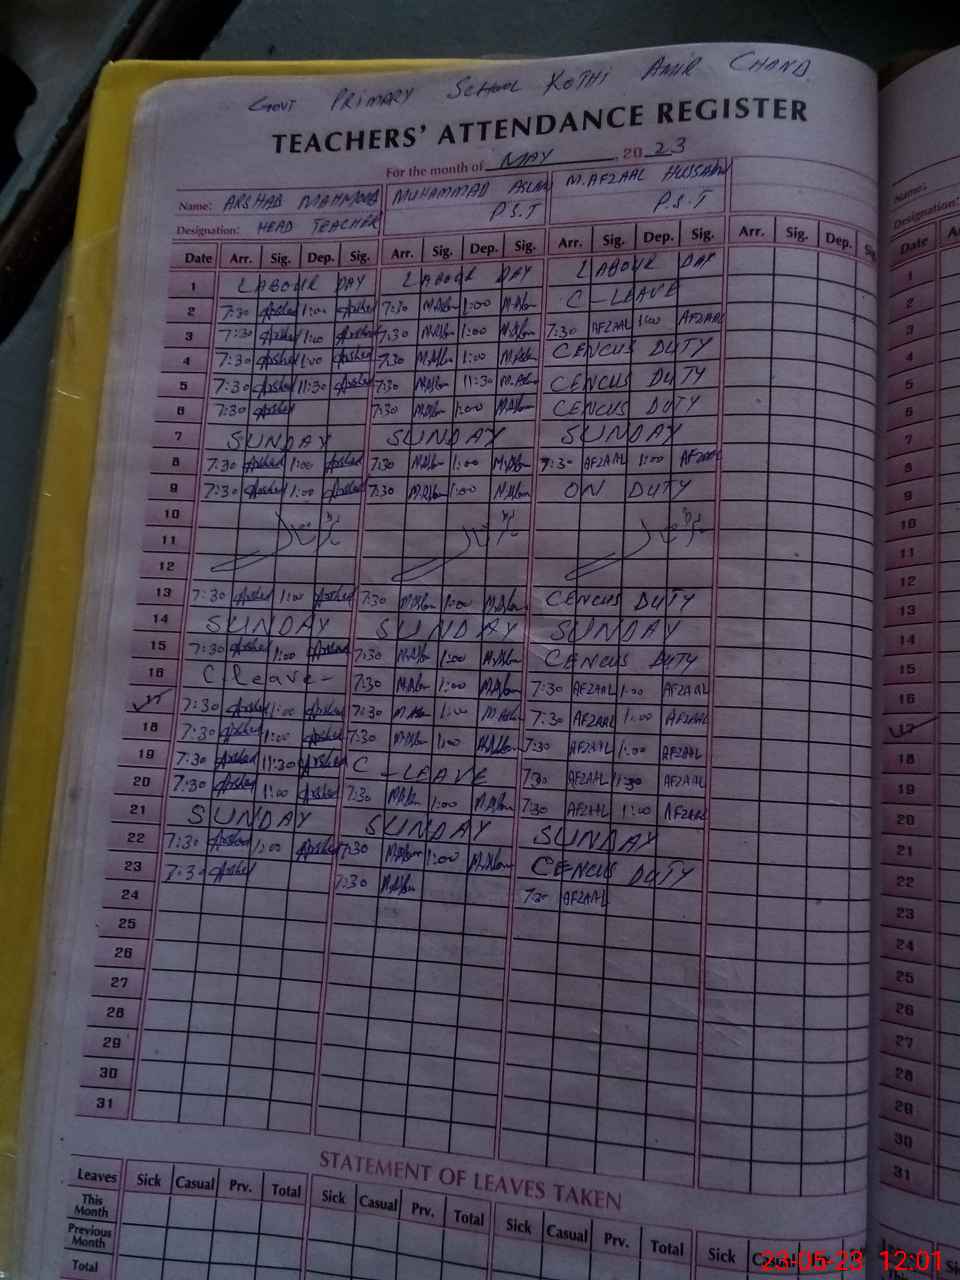 GOVT PRIMARY SCHOOL KOTHI AMIR CHAND
TEACHERS' ATTENDANCE REGISTER
For the month of MAY 2023
Name: ARSHAD MAHMOOD MUHAMMAD ASLAM M. AFZAAL HUSSAIN
Designation: HEAD TEACHER P.S.T P.S.T
Date Arr. Sig. Dep. Sig. Arr. Sig. Dep. Sig. Arr. Sig. Dep. Sig. Arr. Sig. Dep. Sig.
1 LABOUR DAY LABOUR DAY LABOUR DAY
2 7:30 Arshad 1:00 Arshad 7:30 M.Aslam 1:00 M.Aslam C-LEAVE
3 7:30 Arshad 1:00 Arshad 7:30 M.Aslam 1:00 M.Aslam 7:30 AFZAAL 1:00 AFZAAL
4 7:30 Arshad 1:00 Arshad 7:30 M.Aslam 1:00 M.Aslam CENCUS DUTY
5 7:30 Arshad 11:30 Arshad 7:30 M.Aslam 11:30 M.Aslam CENCUS DUTY
6 7:30 Arshad 7:30 M.Aslam 1:00 M.Aslam CENCUS DUTY
7 SUNDAY SUNDAY SUNDAY
8 7:30 Arshad 1:00 Arshad 7:30 M.Aslam 1:00 M.Aslam 7:30 AFZAAL 1:00 AFZAAL
9 7:30 Arshad 1:00 Arshad 7:30 M.Aslam 1:00 M.Aslam ON DUTY
10
11
12
13 7:30 Arshad 1:00 Arshad 7:30 M.Aslam 1:00 M.Aslam CENCUS DUTY
14 SUNDAY SUNDAY SUNDAY
15 7:30 Arshad 1:00 Arshad 7:30 M.Aslam 1:00 M.Aslam CENCUS DUTY
16 C leave- 7:30 M.Aslam 1:00 M.Aslam 7:30 AFZAAL 1:00 AFZAAL
17 7:30 Arshad 1:00 Arshad 7:30 M.Aslam 1:00 M.Aslam 7:30 AFZAAL 1:00 AFZAAL
18 7:30 Arshad 1:00 Arshad 7:30 M.Aslam 1:00 M.Aslam 7:30 AFZAAL 1:00 AFZAAL
19 7:30 Arshad 11:30 Arshad C-LEAVE 7:30 AFZAAL 11:30 AFZAAL
20 7:30 Arshad 1:00 Arshad 7:30 M.Aslam 1:00 M.Aslam 7:30 AFZAAL 1:00 AFZAAL
21 SUNDAY SUNDAY SUNDAY
22 7:30 Arshad 1:00 Arshad 7:30 M.Aslam 1:00 M.Aslam CENCUS DUTY
23 7:30 Arshad 7:30 M.Aslam 7:30 AFZAAL
24
25
26
27
28
29
30
31
STATEMENT OF LEAVES TAKEN
Leaves Sick Casual Prv. Total Sick Casual Prv. Total Sick Casual Prv. Total Sick Prv. Total
This Month
Previous Month
Total
Name:
Designation:
Date
1
2
3
4
5
6
7
8
9
10
11
12
13
14
15
16
17
18
19
20
21
22
23
24
25
26
27
28
29
30
31
23-05-23 12:01